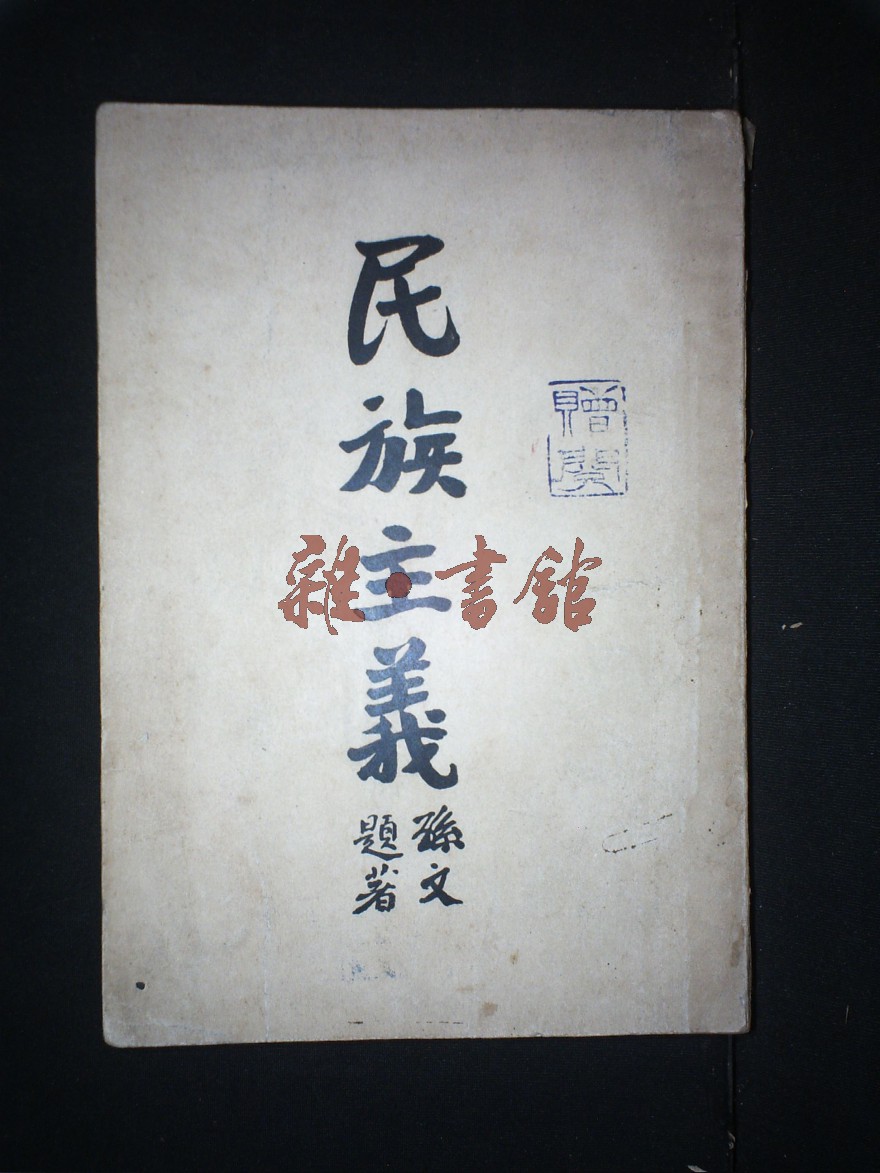 民族主義
孫文
題著
贈閱
雜·書館